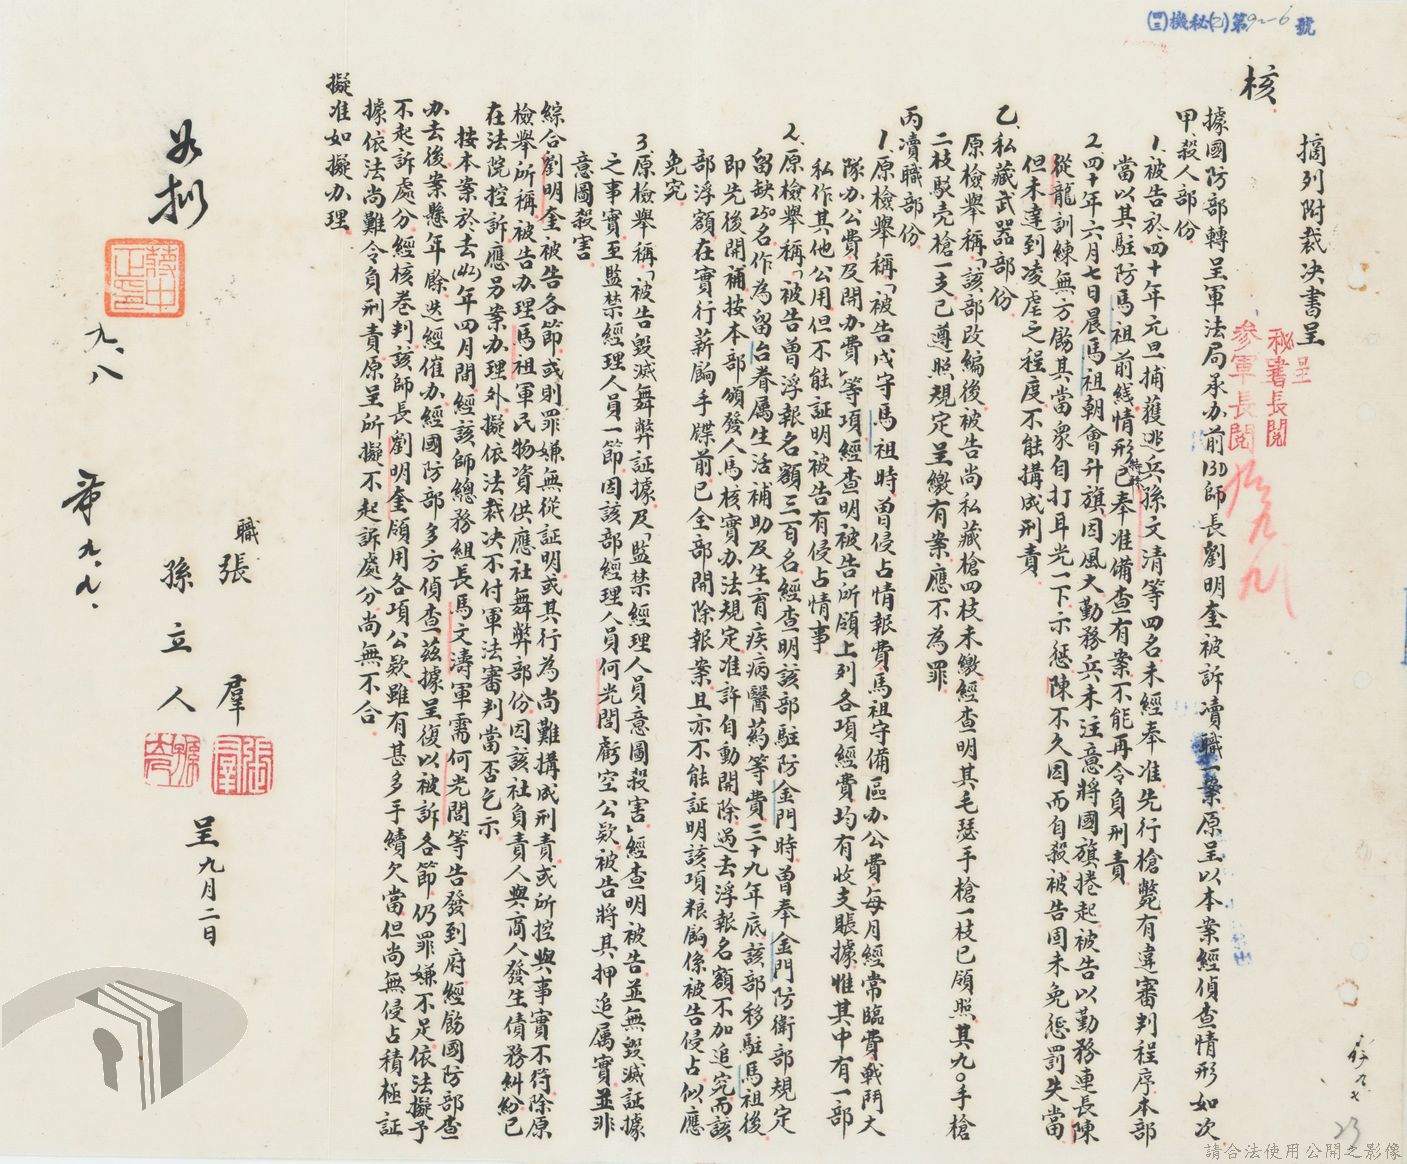 ㈣㈢機秘㈡第92-6號
摘列附裁決書呈
核
呈
秘書長閱
參軍長閱
據國防部轉呈軍法局承办前130師長劉明奎被訴瀆職一案原呈以本案經偵查情形如次
甲殺人部份
1.被告於四十年元旦捕獲逃兵孫文清等四名未經奉准先行槍斃有違審判程序本部
當以其駐防馬祖前綫情形特殊已奉准備查有案不能再令負刑責
2.四十年六月七日晨馬祖朝會升旗因風大勤務兵未注意將國旗捲起被告以勤務連長陳
從龍訓練無方飭其當衆自打耳光一下示懲陳不久因而自殺被告固未免懲罰失當
但未達到凌虐之程度不能構成刑責
乙私藏武器部份
原檢舉稱「該部改編後被告尚私藏槍四枝未繳經查明其毛瑟手槍一枝已領照其九〇手槍
二枝駁壳槍一支已遵照規定呈繳有案應不為罪
丙瀆職部份
1.原檢舉稱「被告戍守馬祖時曾侵占情報費馬祖守備區办公費每月經常臨費戰鬥大
隊办公費及開办費」等項經查明被告所領上列各項經費均有收支賬據惟其中有一部
私作其他公用但不能証明被告有侵占情事
2.原檢舉稱「被告曾浮報名額三百名經查明該部駐防金門時曾奉金門防衛部規定
留缺250名作為留台眷屬生活補助及生育疾病醫葯等費三十九年底該部移駐馬祖後
即先後開補按本部頒發人馬核實办法規定准許自動開除過去浮報名額不加追究而該
部浮額在實行薪餉手牒前已全部開除報案且亦不能証明該項粮餉係被告侵占似應
免究
3.原檢舉稱「被告毀滅舞弊証據及「監禁經理人員意圖殺害」經查明被告並無毀滅証據
之事實至監禁經理人員一節因該部經理人員何光閭虧空公欵被告將其押追属實並非
意圖殺害
綜合劉明奎被告各節或則罪嫌無從証明或其行為尚難構成刑責或所控與事實不符除原
檢舉所稱被告办理馬祖軍民物資供應社舞弊部份因該社負責人與商人發生債務糾紛已
在法院控訴應另案办理外擬依法裁決不付軍法審判當否乞示
按本案於去(41)年四月間經該師總務組長馬文濤軍需何光閭等告發到府經飭國防部查
办去後案懸年餘迭經催办經國防部多方偵查茲據呈復以被訴各節仍罪嫌不足依法擬予
不起訴處分經核卷判該師長劉明奎領用各項公欵雖有甚多手續欠當但尚無侵占積極証
據依法尚難令負刑責原呈所擬不起訴處分尚無不合
擬准如擬办理
職張羣
孫立人
呈九月二日
如拟
蔣中正印
九、八
九、九、
23
請合法使用公開之影像